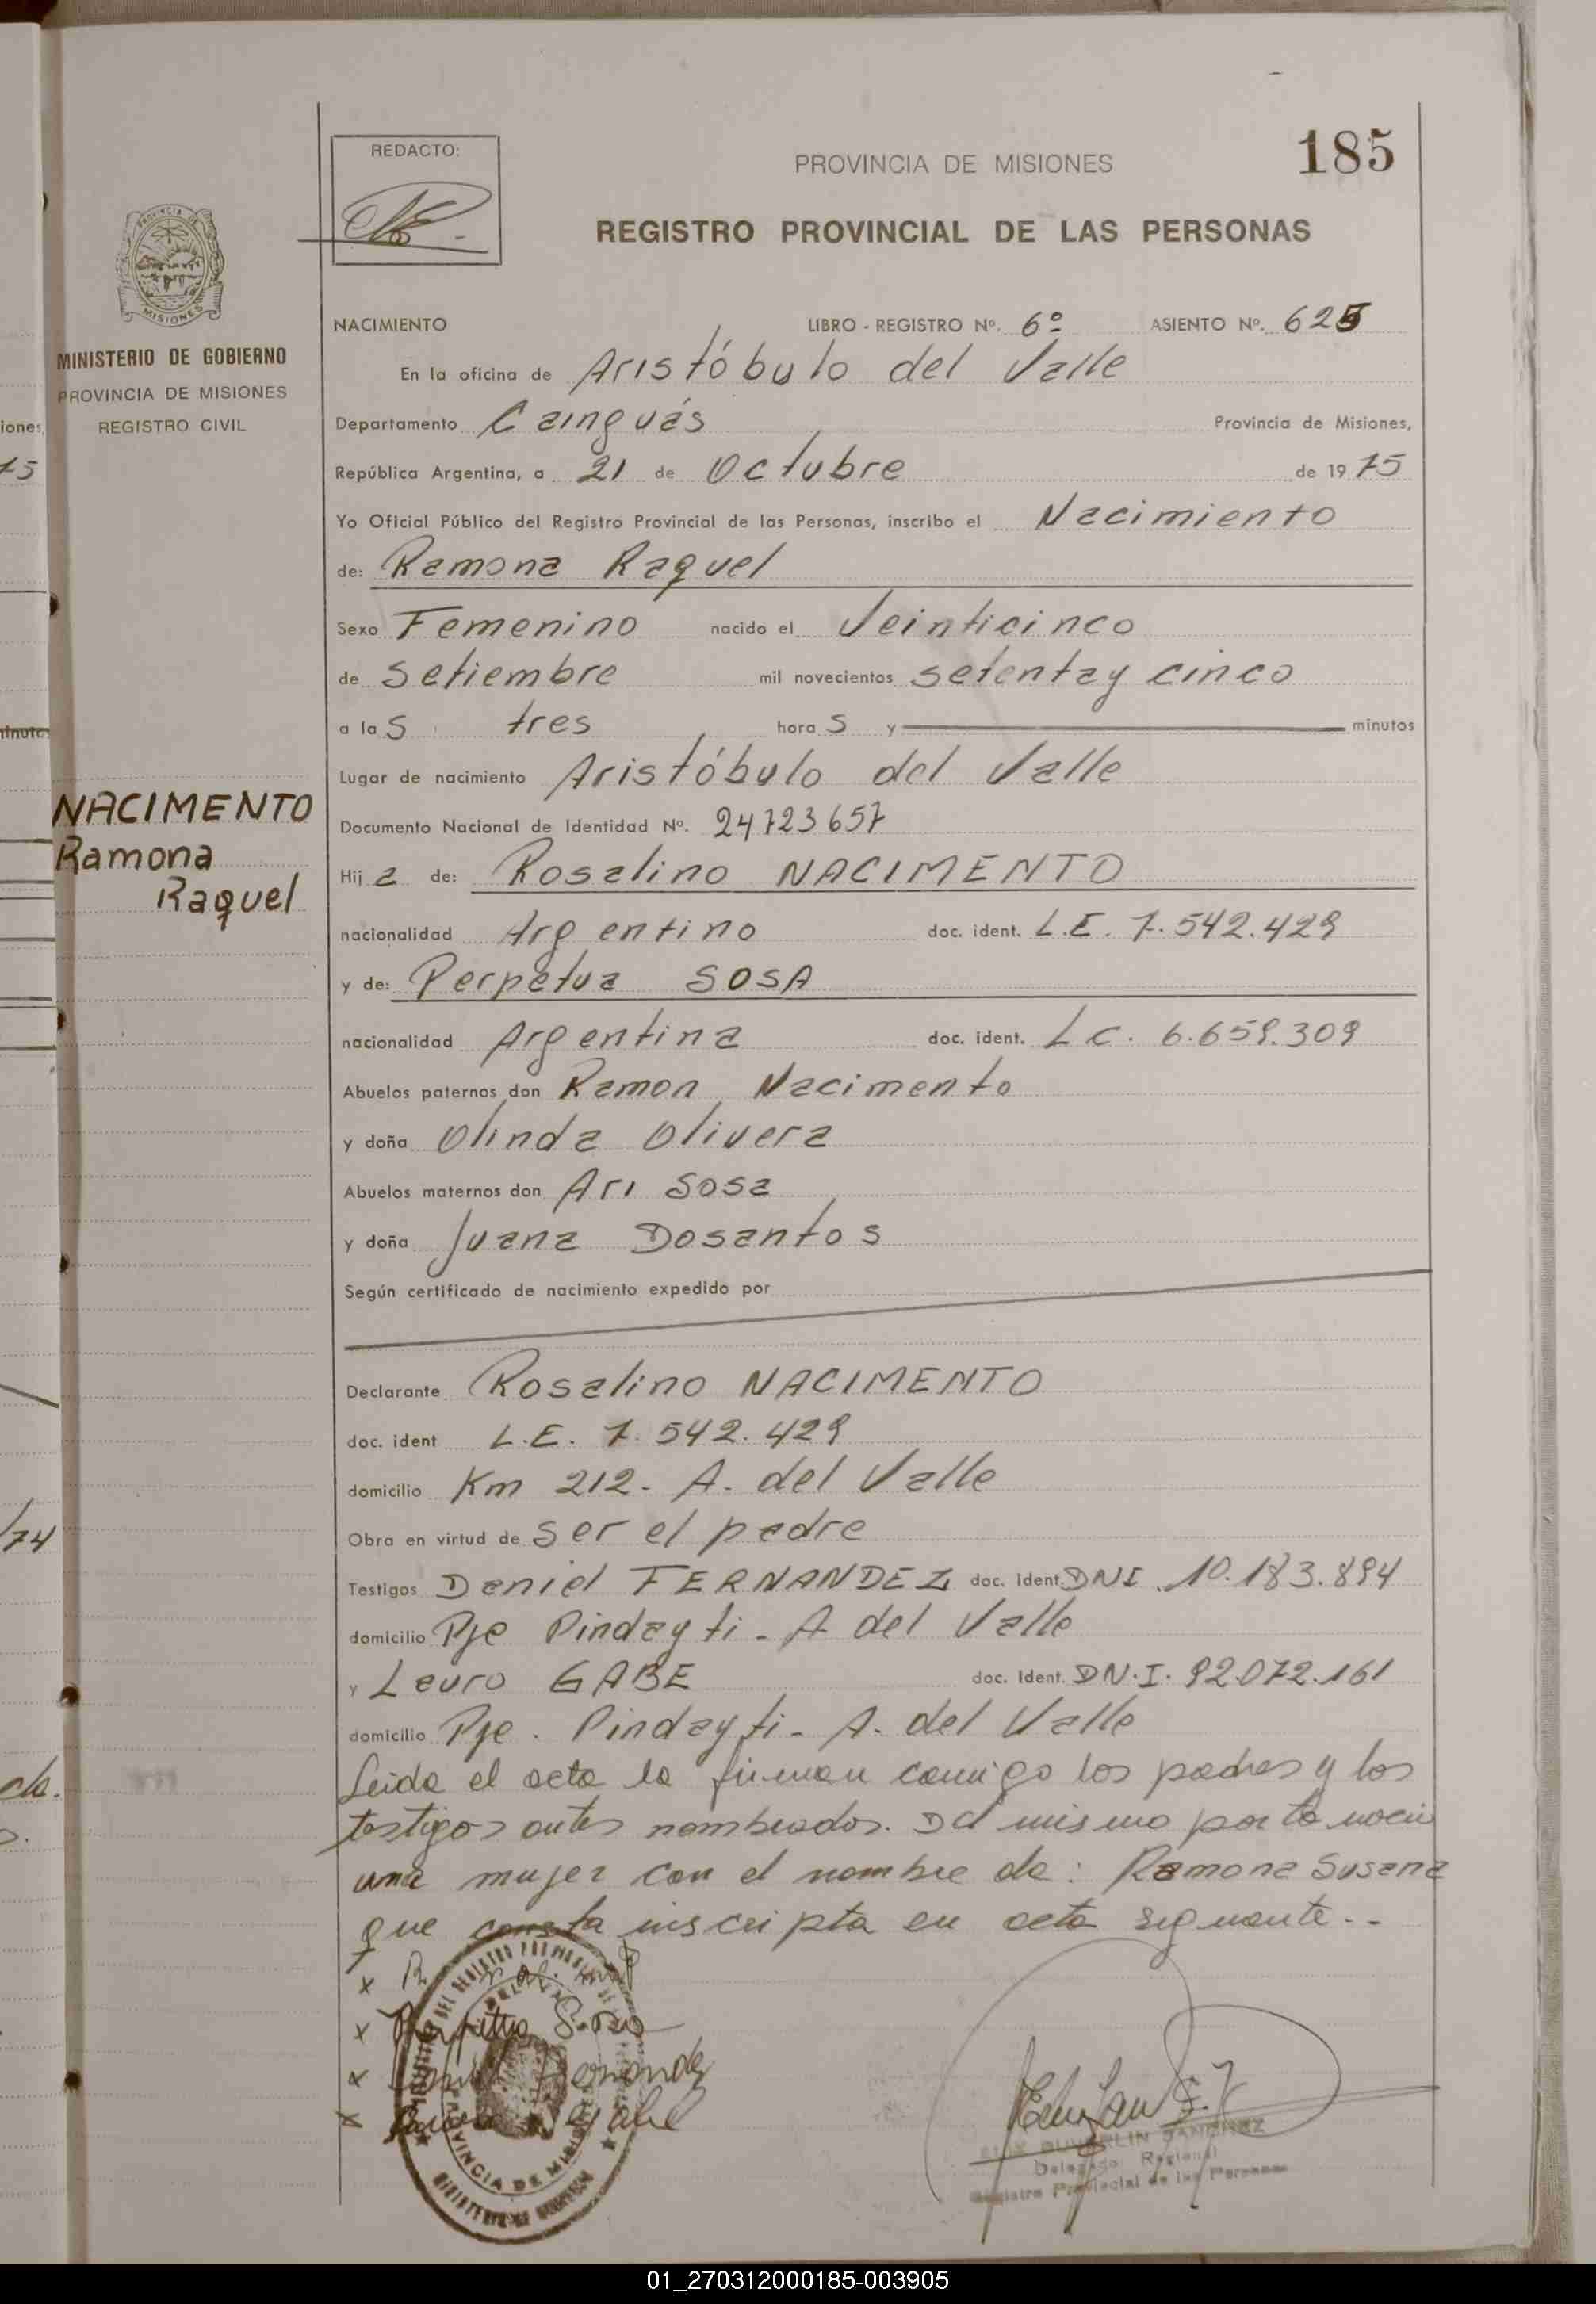 185
REDACTO:
PROVINCIA DE MISIONES
REGISTRO PROVINCIAL DE LAS PERSONAS
PROVINCIA DE
MISIONES
MINISTERIO DE GOBIERNO
PROVINCIA DE MISIONES
REGISTRO CIVIL
iones,
75
NACIMIENTO LIBRO - REGISTRO Nº. 6º ASIENTO Nº. 625
En la oficina de Aristóbulo del Valle
Departamento Cainguás Provincia de Misiones,
República Argentina, a 21 de Octubre de 1975
Yo Oficial Público del Registro Provincial de las Personas, inscribo el Nacimiento
de: Ramona Raquel
Sexo Femenino nacido el Veinticinco
de Setiembre mil novecientos setenta y cinco
a las tres horas y minutos
Lugar de nacimiento Aristóbulo del Valle
NACIMENTO
Ramona
Raquel
Documento Nacional de Identidad Nº. 24723657
Hija de: Rosalino NACIMENTO
nacionalidad Argentino doc. ident. L.E. 7.542.429
y de: Perpetua SOSA
nacionalidad Argentina doc. ident. L C. 6.659.309
Abuelos paternos don Ramon Nacimento
y doña Olinda Olivera
Abuelos maternos don Ari Sosa
y doña Juana Dosantos
Según certificado de nacimiento expedido por
Declarante Rosalino NACIMENTO
doc. ident L.E. 7.542.429
domicilio Km 212- A. del Valle
/74
Obra en virtud de ser el padre
Testigos Daniel FERNANDEZ doc. ident. DNI. 10.183.894
domicilio Pje Pindayti - A del Valle
y Lauro GABE doc. Ident. DN.I. 92.072.161
domicilio Pje. Pindayti - A. del Valle
Leida el acta la firman conmigo los padres y los
testigos antes nombrados. Del mismo parto nacio
una mujer con el nombre de: Ramona Susana
que consta inscripta en acta siguiente.-
x
x Perpetua Sosa
x Fernandez
x
PROVINCIA DE MISIONES
SANCHEZ
Delegado Regional
Registro Provincial de las Personas
01_270312000185-003905